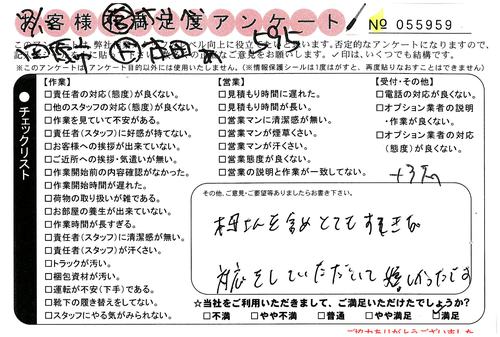 お客様満足度アンケート
№ 055959
このアンケートは、弊社
ベル向上に役立
たいと思います。否定的なアンケートになりますので、
ご意見をお願いします。✓印は、いくつでも結構です。
※このアンケートはアンケート目的以外には使用いたしません。(※情報保護シールは1度はがすと、再度貼りなおすことはできません)
チェックリスト
【作業】
□責任者の対応(態度)が良くない。
□他のスタッフの対応(態度)が良くない。
□作業を見ていて不安がある。
□責任者(スタッフ)に好感が持てない。
□お客様への挨拶が出来ていない。
□ご近所への挨拶・気遣いが無い。
□作業開始前の内容確認がなかった。
□作業開始時間が遅れた。
□荷物の取り扱いが雑である。
□お部屋の養生が出来ていない。
□作業時間が長すぎる。
□責任者(スタッフ)に清潔感が無い。
□責任者(スタッフ)が汗くさい。
□トラックが汚い。
□梱包資材が汚い。
□運転が不安(下手)である。
□靴下の履き替えをしてない。
□スタッフにやる気がみられない。
【営業】
□見積もりに遅れた。
□見積もり時間が長い。
□営業マンに清潔感が無い。
□営業マンが煙草くさい。
□営業マンが汗くさい。
□営業態度が良くない。
□営業の説明と作業が一致してない。
【受付・その他】
□電話の対応が良くない。
□オプション業者の説明
・作業が良くない。
□オプション業者の対応
(態度)が良くない。
その他、ご意見・ご要望等ありましたらお書き下さい。
対応をしていただいて嬉しかったです
☆当社をご利用いただきまして、ご満足いただけたでしょうか?
□不満 □やや不満 □普通 □やや満足 □満足
ご協力ありがとうございました